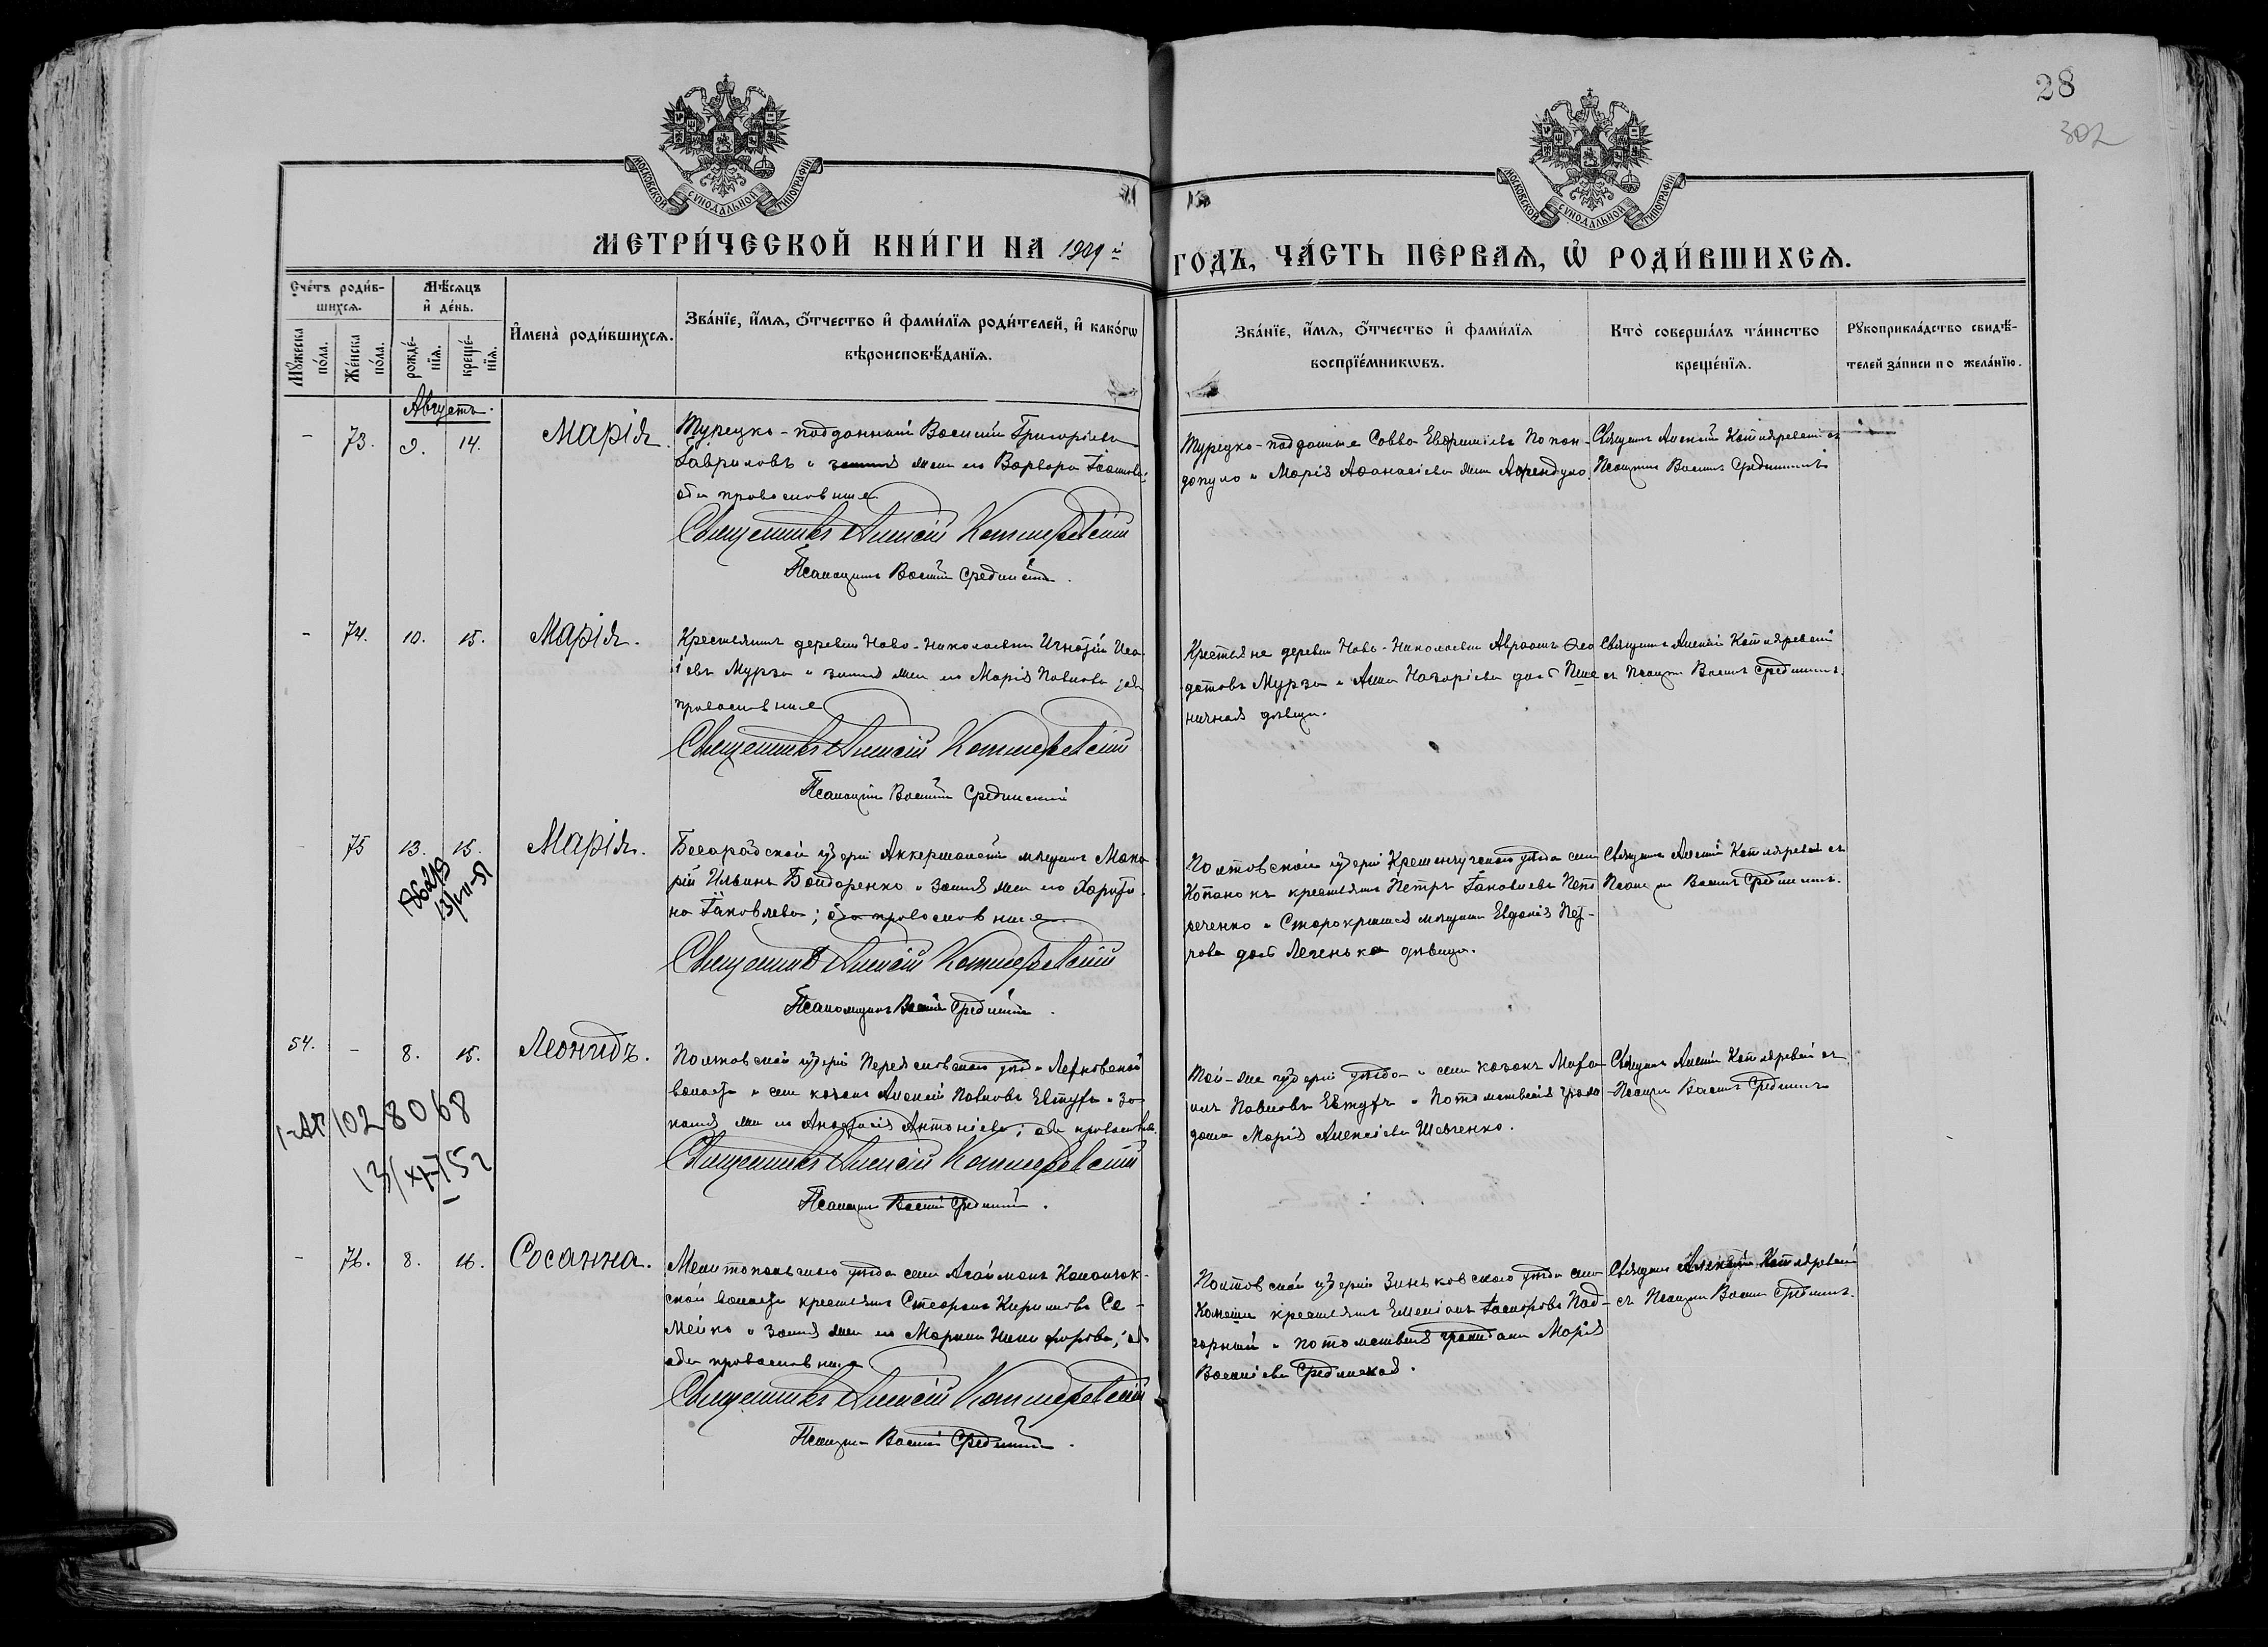 28
302
МОСКОВСКОЙ СѴНОДАЛЬНОЙ ТИПОГРАФІИ
МОСКОВСКОЙ СѴНОДАЛЬНОЙ ТИПОГРАФІИ
МЕТРИ́ЧЕСКОЙ КНИ́ГИ НА 1909 й
ГОДЪ, ЧА́СТЬ ПЕ́РВАѦ, Ѡ҆ РОДИ́ВШИХСѦ.
Сче́тъ роди́в-
шихсѧ.
Мꙋ́жеска по́ла.
Же́нска по́ла.
Мѣ́сѧцъ
и҆ де́нь.
рожде́-
нїѧ.
креще́-
нїѧ.
И҆мена̀ роди́вшихсѧ.
Зва́нїе, и҆́мѧ, ѻ҆́тчество и҆ фами́лїѧ роди́телей, и҆ како́гѡ
вѣроисповѣ́данїѧ.
Зва́нїе, и҆́мѧ, ѻ҆́тчество и҆ фами́лїѧ
воспрїе́мникѡвъ.
Кто̀ соверша́лъ та́инство
креще́нїѧ.
Рꙋкоприкла́дство свидѣ́-
телей за́писи по жела́нїю.
Августъ.
- 73. 9. 14. Марія
Турецко-подданный Василій Григорьевъ
Гавриловъ и жена его Варвара
оба православные
Священникъ Алексій Котляревскій
Псаломщикъ Василій Срединскій.
Турецко-подданные Савва Евфиміевъ Попан-
допуло и Марія Аѳанасіева Арендуло
Священ. Алексій Котляревскій съ
Псаломщ. Василіемъ Срединскимъ
- 74. 10. 15. Марія.
Крестьянинъ деревни Ново-Николаевки Игнатій Иса-
іевъ Мурза и законная жена его Марія Павлова; оба
православные
Священникъ Алексій Котляревскій
Псаломщикъ Василій Срединскій
Крестьяне деревни Ново-Николаевки Авраамъ Ѳео
дотовъ Мурза и Анна Назаріева дочь Пше
ничная дѣвица.
Священ. Алексій Котляревскій
съ Псаломщ. Василіемъ Срединскимъ.
- 75 13. 15. Марія.
Бессарабской губерніи Аккерманскій мѣщанинъ Мака
рій Ильинъ Бондаренко и законная жена его Харити-
на Іаковлева; оба православные
Священникъ Алексій Котляревскій
Псаломщикъ Василій Срединскій.
Полтавской губерніи Кременчугскаго уѣзда села
крестьянинъ Петръ Іаковлевъ Пет
реченко и Старокрымская мѣщанка Евдокія Пет-
рова дочь Легенькая дѣвица.
Священ. Алексій Котляревскій съ
Псаломщ. Василіемъ Срединскимъ.
54. - 8. 15. Леонидъ.
Полтавской губерніи Переяславскаго уѣзда
волости и села казакъ Алексій Павловъ Евтухъ и за-
конная жена его Анастасія Антоніева; оба православные.
Священникъ Алексій Котляревскій
Псаломщикъ Василій Срединскій.
Той-же губерніи уѣзда и села казакъ Миха
илъ Павловъ Евтухъ и потомственная граж
данка Марія Алексіева Шевченко.
Священ. Алексій Котляревскій съ
Псаломщ. Василіемъ Срединскимъ
1028068
- 76. 8. 16. Сосанна.
Мелитопольскаго уѣзда села Агайманъ Каланчак-
ской волости крестьянинъ Стефанъ Кириловъ Се-
мейко и законная жена его Марина Никифорова;
оба православные
Священникъ Алексій Котляревскій
Псаломщикъ Василій Срединскій.
Полтавской губерніи Зиньковскаго уѣзда села
крестьянинъ Емеліанъ Под-
горный и потомственная гражданка Марія
Василіева Срединская.
Священ. Алексій Котляревскій
съ Псаломщ. Василіемъ Срединскимъ.